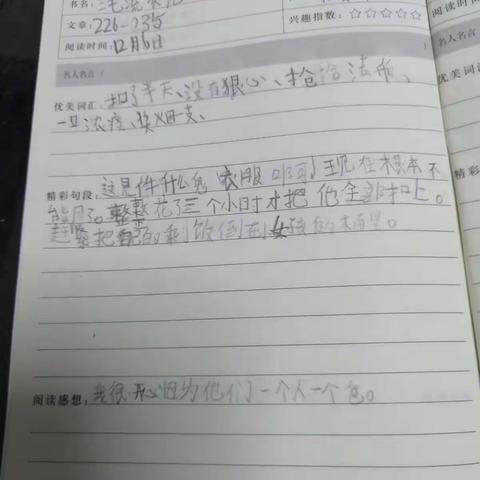 书名：三毛流浪记
文章：226-235 兴趣指数：☆☆☆☆☆
阅读时间：12月6日 阅读时间
名人名言（ ） 名人名言
优美词汇，扣了半天、没有狠心、抢 法币、 优美词
一旦
精彩句段，这是件什么鬼衣服 现在根本不 精彩
能 整整花了三个小时才把他全部扣上。
赶紧把 的剩饭倒在女孩的
阅读感想，我很开心因为他们一个人一个包。